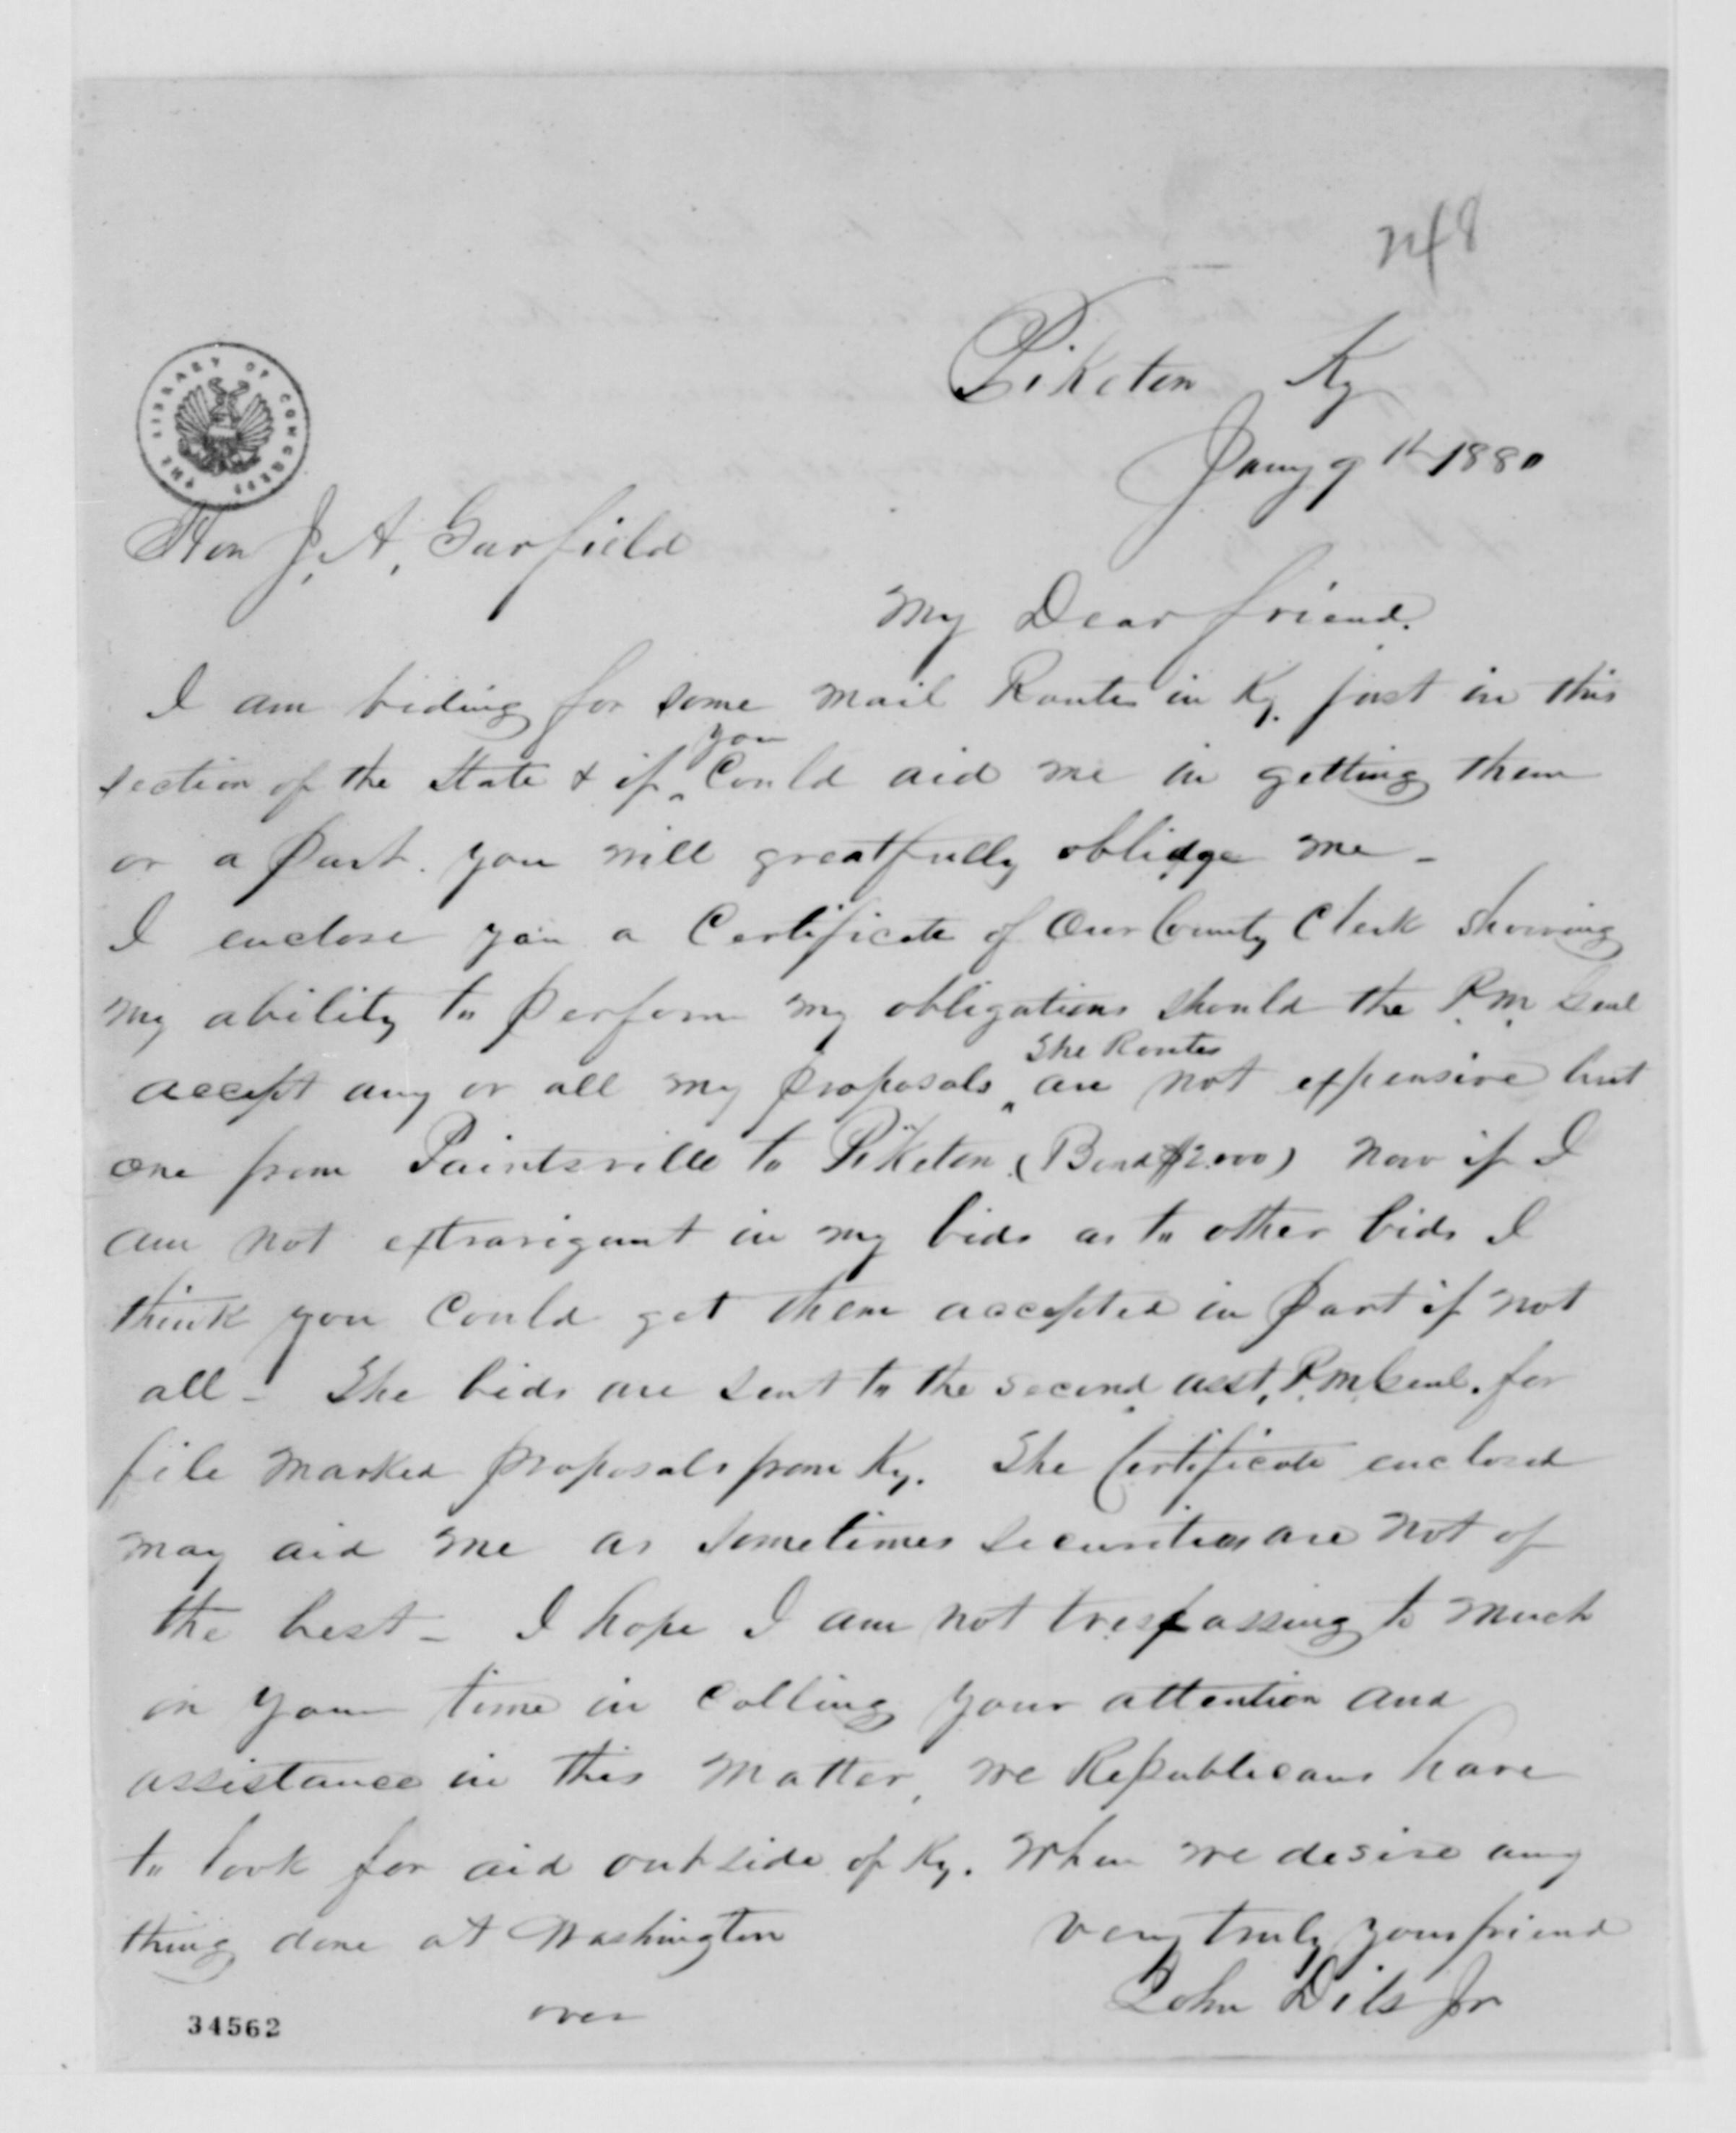 248
Piketon Ky
Jany 9th 1880
THE LIBRARY OF CONGRESS
Hon J. A. Garfield
My Dear friend.
I am biding for some mail Routes in Ky. just in this
you
section of the State & if ‸ Could aid me in getting them
or a part. you will greatfully oblidge me -
I enclose you a Certificate of Our County Clerk Showing
my ability to perform my obligations should the P.M. Genl
accept any or all my proposals ‸ are not expensive but
The Routes
one from Paintsville to Piketon (Bond $2.000) Now if I
am not extravigant in my bids as to other bids I
think you Could get them accepted in part if not
all - The bids are sent to the second asst. P.M. Genl. for
file marked proposals from Ky. The Certificate enclosed
may aid me as sometimes securities are not of
the best - I hope I am not trespassing to much
on your time in calling your attention and
assistance in this matter, we Republicans have
to look for aid outside of Ky. When we desire any
thing done at Washington
very truly your friend
John Dils Jr
over
34562